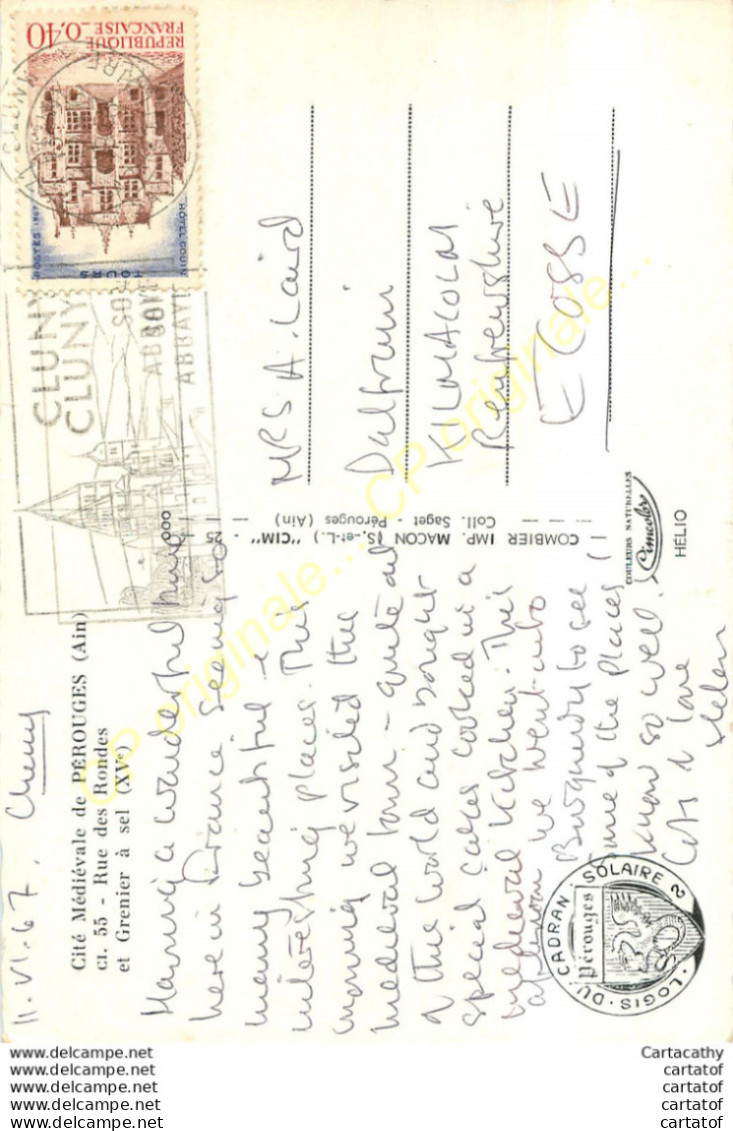 11.VI.67. Cluny
Cité Médiévale de PÉROUGES (Ain)
CI. 55 - Rue des Rondes
et Grenier à sel (XVe)
Having a wonderful time
here in France seeing so
many beautiful &
interesting places. This
morning we visited the
medieval town - quite out
of this world and bought
special cakes cooked in a
medieval kitchen. This
afternoon we went into
Burgundy to see
some of the places I
know so well.
Lots of love
Helen
CADRAN SOLAIRE
LOGIS DU
Pérouges
COMBIER IMP. MACON (S.-et-L.) "CIM" - 25 -
Coll. Saget - Pérouges (Ain)
COULEURS NATURELLES
Cimcolor
HÉLIO
CLUNY
CLUNY
RÉPUBLIQUE
FRANÇAISE 0,40
POSTES 1967
HÔTEL GOUIN
TOURS
MRS A. Laird
KILMALCOLM
Renfrewshire
ECOSSE
CP originale...
CP originale...
www.delcampe.net
www.delcampe.net
www.delcampe.net
www.delcampe.net
www.delcampe.net
Cartacathy
cartatof
cartatof
cartatof
cartatof